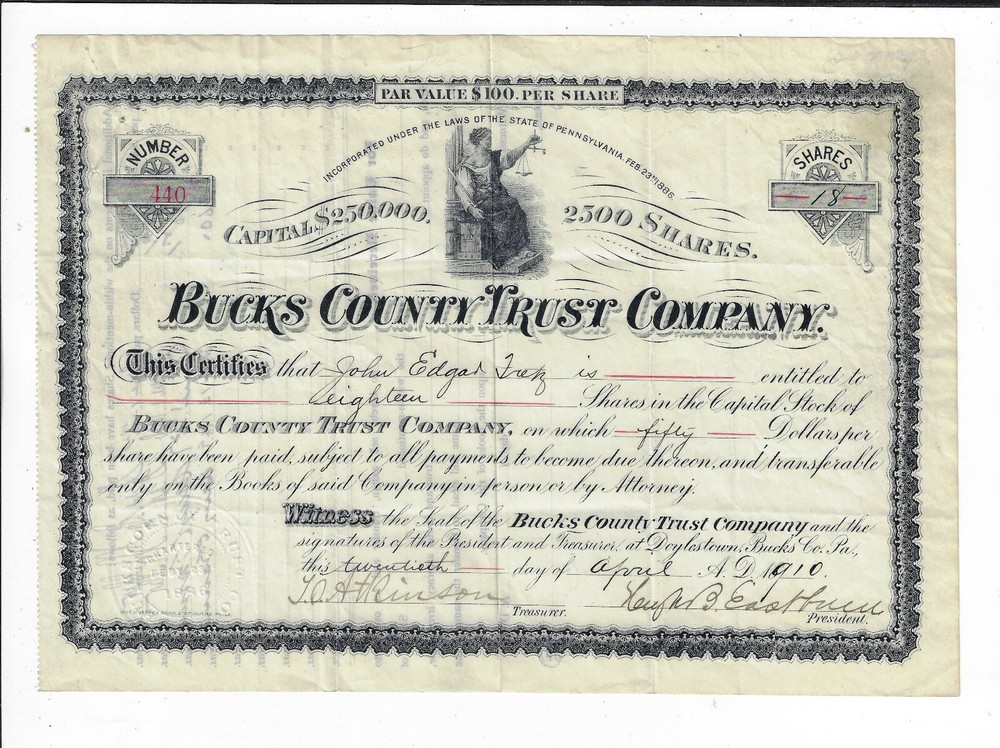 PAR VALUE $100. PER SHARE
INCORPORATED UNDER THE LAWS OF THE STATE OF PENNSYLVANIA, FEB. 23RD 1886.
NUMBER
440
SHARES
18
CAPITAL $250,000. 2500 SHARES.
BUCKS COUNTY TRUST COMPANY.
This Certifies that John Edgar Fretz is entitled to
Eighteen Shares in the Capital Stock of
BUCKS COUNTY TRUST COMPANY, on which fifty Dollars per
share have been paid, subject to all payments to become due thereon, and transferable
only on the Books of said Company in person or by Attorney.
Witness the Seal of the Bucks County Trust Company and the
signatures of the President and Treasurer, at Doylestown, Bucks Co. Pa.,
this twentieth day of April A.D. 1910.
T. O. Atkinson Treasurer. Hugh B. Eastburn President.